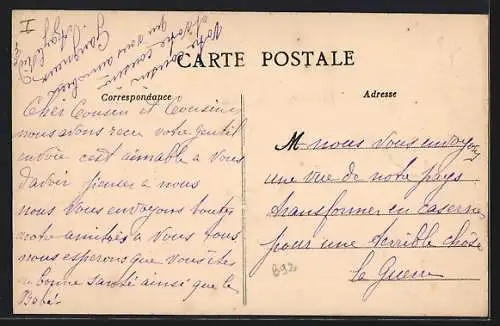 I
votre cousin
votre cousine
qui vous aime
CARTE POSTALE
Correspondance
Adresse
Cher Cousin et Cousine
nous avons recu votre gentil
envoie cest aimable a vous
davoir penser a nous
nous vous envoyons toutes
notre amitiés a vous tous
nous esperons que vous êtes
en bonne santé ainsi que le
Bébé
M nous vous envoyons
une vue de notre pays
transformer en caserne
pour une terrible chose
le Guerre
692